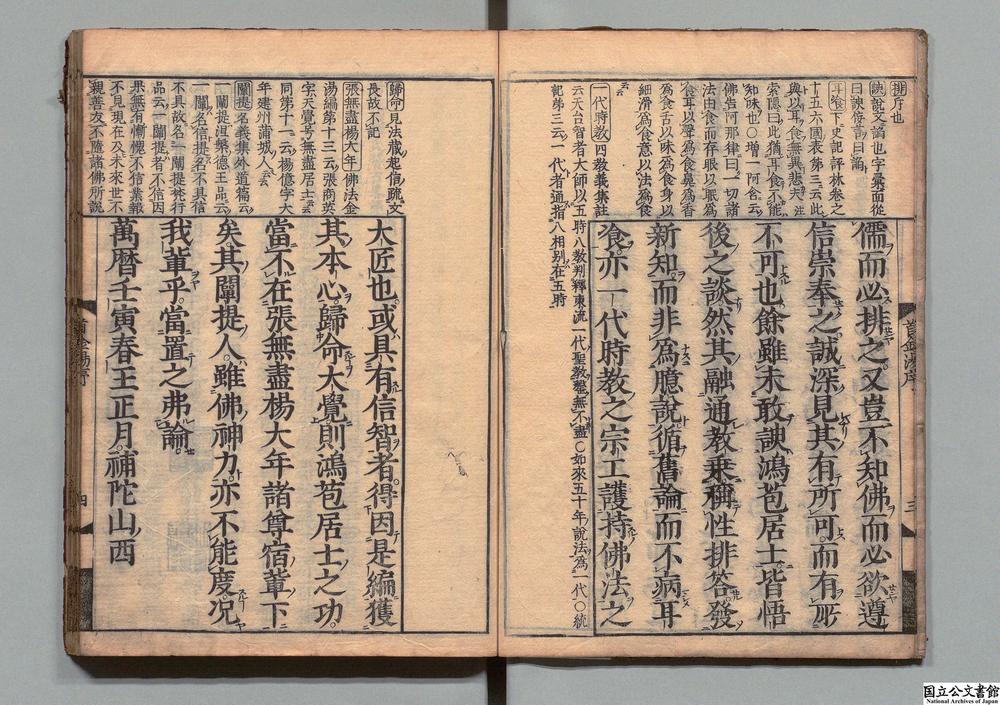 排斥也
諛說文謟也字彙面從
曰諛佞言曰謟
耳飡下史記評林卷之
十五六國表第三云此
與以耳食無異悲夫註
索隱曰此猶耳食不能
知味也○增一阿含云
佛告阿那律曰一切諸
法由食而存眼以眠為
食耳以聲為食鼻為香
為食舌以味為食身以
細滑為食意以法為食
云云
一代時教四教義集註
云天台智者大師以五時八教判釋東流一代聖教罄無不盡○如來五十年說法為一代○統
記第三云一代者通指八相別在五時
儒而必排之又豈不知佛而必欲遵
信崇奉之誠深見其有所可而有所
不可也餘雖未敢諛鴻苞居士皆悟
後之談然其融通教乗稱性排答發
新知而非為臆說循舊論而不病耳
飡亦一代時教之宗工護持佛法之
首金湯序
三
歸命見法蔵起信疏文
長故不記
張無盡楊大年佛法金
湯編第十三云張商英
字天覺号無盡居士云云
同第十一云楊億字大
年建州蒲城人云云
闡提名義集外道篇云
一闡提涅槃德王品云
一闡名信提名不具信
不具故名一闡提梵行
品云一闡提者不信因
果無有慚愧不信業報
不見現在及未來世不
親善友不隨諸佛所說
大匠也或具有信智者得因是編獲
其本心歸命大覺則鴻苞居士之功
當不在張無盡楊大年諸尊宿輩下
矣其闡提人雖佛神力亦不能度况
我輩乎當置之弗論
萬曆壬寅春王正月補陀山西
首金湯序
四
国立公文書館
National Archives of Japan